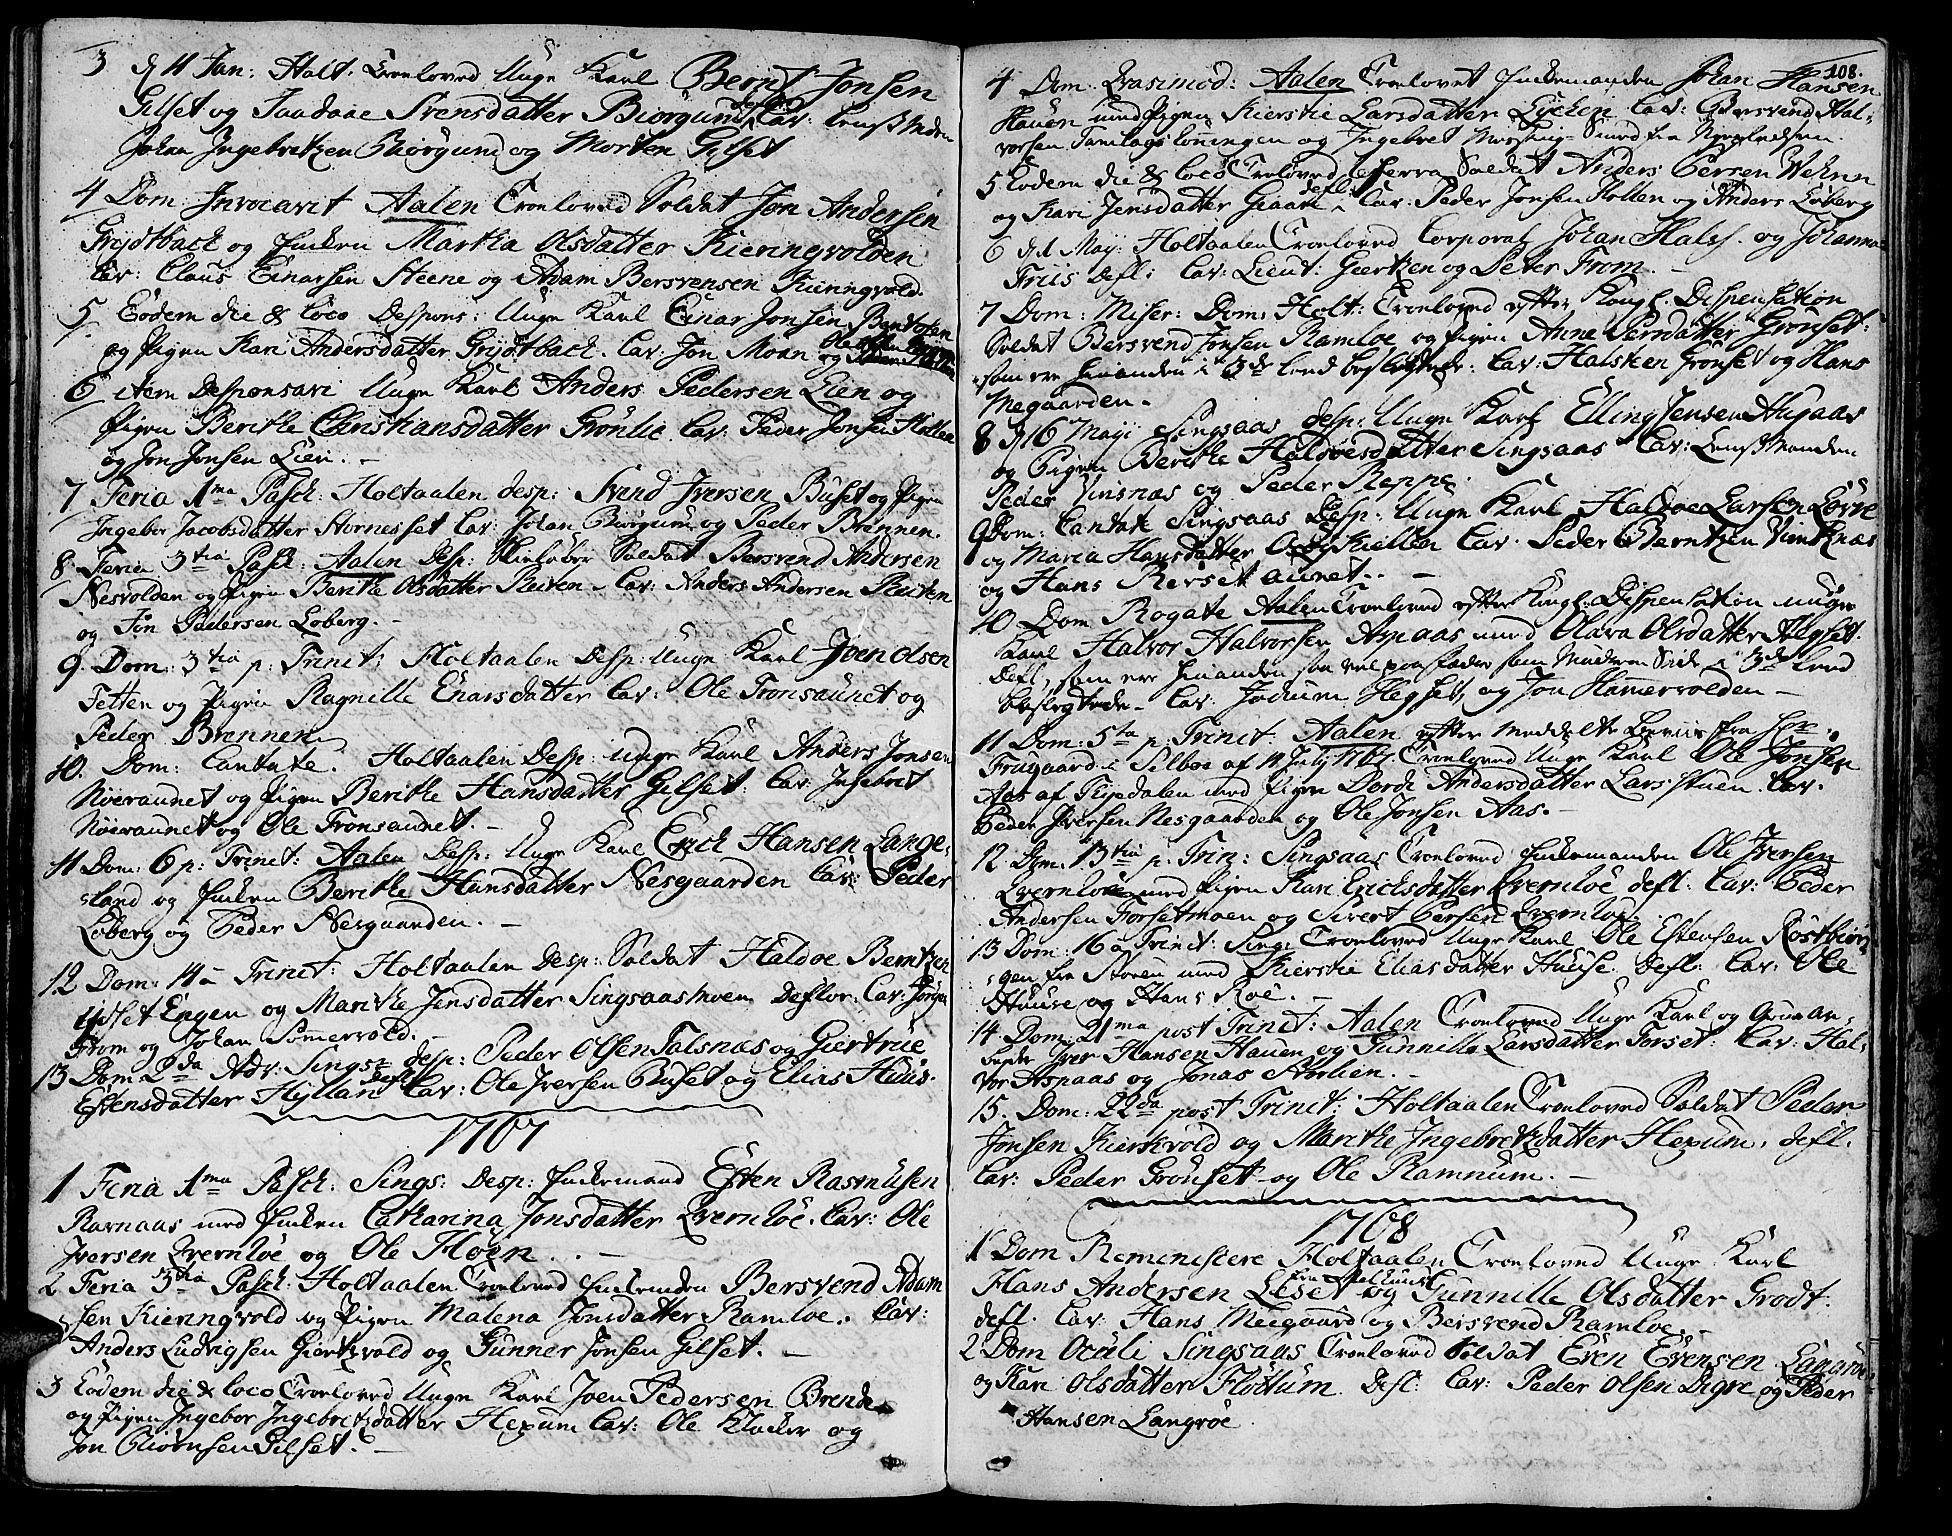 3 d 11 Jan: Holt. Troeloved Unge Karl Bernt Jonsen
Gilset og Svensdatter Biörgum defl: Cav:
Johan Ingebretzen Biörgum og Morten Gilset
4 Dom. Invocavit Aalen Troeloved Soldat Jon Andersen
Grydtback og Enken Martha Olsdatter Kieringvolden
Cav: Claus Einarsen Steene og Adam Bersvensen Kieringvold.
5 Eodem die & loco Despons: Unge Karl Einar Jonsen
og Pigen Kari Andersdatter Grydtback. Cav: Jon Moan og
6 item Desponsari Unge Karl Anders Pedersen Lien og
Pigen Berithe Christiansdatter Grönlie Cav: Peder Jonsen Holten
og Jon Jonsen Lien. –
7 Feria 1ma Pasch: Holtaalen desp: Svend Iversen Buset og Pigen
Ingebor Jacobsdatter Hornesset Cav: Johan Biörgum og Peder Brennen.
8 Feria 3tia Pasch: Aalen Desp: Soldat Bersvend Andersen
Nesvolden og Pigen Berithe Olsdatter Reiten. Cav: Anders Andersen Reiten
og Jon Pedersen Loberg. –
9. Dom: 3tia p: Trinit: Holtaalen Desp: Unge Karl Joen Olsen
Tetten og Pigen Ragnille Enarsdatter Cav: Ole Tronsaunet og
Peder Brennen
10. Dom: Cantate. Holtaalen Desp: unge Karl Anders Jonsen
Nöeraunet og Pigen Berithe Hansdatter Gilset: Cav: Ingebret
Nöeraunet og Ole Tronsaunet. –
11 Dom: 6 p: Trinit: Aalen Desp: Unge Karl Erich Hansen Lange-
land og Enken Berithe Hansdatter Nesgaarden Cav: Peder
Loberg og Peder Nesgaarden. –
12 Dom: 14 – Trinit: Holtaalen Desp: Soldat Haldoe Berntzen
Engen og Marithe Jensdatter Singsaasmoen Deflor: Cav: Jörgen
From og Johan Somervold. –
13 Dom 2da Adv: Sings: desp: Peder Olsen Talsnæs og Giertrue
Estensdatter Hyllan defl: Cav: Ole Iversen Buset og Elias Huus.
1767
1 Feria 1ma Pasch: Sings: Desp: Enkemand Esten Rasmusen
Ravnaas med Enken Catharina Jonsdatter Qvernlöe. Cav: Ole
Iversen Qvernlöe og Ole Hoen. –
2 Feria 3tia Pasch: Holtaalen Troeloved Enkemanden Bersvend Adam
sen Kieringvold og Pigen Malena Jonsdatter Ramloe. Cav:
Anders Ludvigsen Giertzvold og Gunner Jonsen Gilset. –
3 Eodem die & loco Troeloved Unge Karl Joen Pedersen Brende
og Pigen Ingebor Ingebretzdatter Hexum Cav: Ole Klocker og
Jon Biörnsen Gilset. –
108.
4 Dom. Qvasimod: Aalen Troelovet Enkemanden Johan Hansen
Hauen med Pigen Kierstie Larsdatter Löcken Cav: Bersvend Hal-
vorsen og Ingebret
5 Eodem die & loco Troeloved Soldat Anders Persen Wehnn
og Kari Jensdatter Giaare defl: Cav: Peder Jonsen Holten og Anders Loberg
6 d 1 May: Holtaalen Troeloved Corporal Johan Hals. og Johanna
Friis Defl: Cav: Lieut: Giertzen og Peter From. –
7 Dom: Miser: Dom: Holt: Troeloved efter Kongl. Dispensation
Soldat Bersvend Jonsen Ramloe og Pigen Anne Persdatter Grönset:
som ere hinanden i 3de Leed beslegtede: Cav: Halsten Grönset og Hans
Megaarden. –
8 d 16 Maji Singsaas desp: Unge Karl Elling Jensen Augaas
og Pigen Berithe Haldoesdatter Singsaas Cav: Lensmanden
Peder Vinsnæs og Peder Reppe.
9 Dom: Cantate Singsaas Desp: Unge Karl Haldoe Larsen Lövre
og Maria Hansdatter Cav. Peder Berntzen Vinsnæs
og Hans Rersetaunet. –
10 Dom Rogate Aalen Troeloved efter Kongl: Dispensation unge
Karl Halvor Halvorsen Aspaas med Olava Olsdatter Hegset.
defl, som ere hinanden saa vel paa fader som Moderen Side i 3de Leed
beslegtede. Cav: Jochum Hegset og Jon Hamervolden –
11 Dom: 5ta p: Trinit: Aalen efter meddelte Beviis fra Hr:
Fragaard i Selboe af 14 July 1767 Troeloved Unge Karl Ole Jonsen
Aas af Tydalen med Pigen Dorde Andersdatter Larsstuen. Cav.
Peder Iversen Nesgaarden og Ole Jonsen Aas. –
12 Dom. 13tia p. Trin: Singsaas Troeloved Enkemanden Ole Iversen
Qvernlöe med Pigen Kari Erichsdatter Qvernlöe defl: Cav: Peder
Andersen Forsetmoen og Sivert Persen Qvernlöe.
13 Dom: 16 a Trinit: Sings: Troeloved Unge Karl Ole Estensen Rostbiör-
gen fra Stören med Kierstie Eliasdatter Huuse. Defl: Cav: Ole
Huuse og Hans Roe. –
14 Dom. 21ma post Trinit: Aalen Troeloved Unge Karl og Gruvear-
beider Iver Hansen Hauen og Gunnille Larsdatter Forset: Cav: Hal-
vor Aspaas og Jonas Aalien. –
15. Dom: 22da post Trinit: Holtaalen Troeloved Soldat Peder
Jonsen Kirkvold og Marithe Ingebretzdatter Hexum, defl.
Cav: Peder Grönset og Ole Ramnum. –
1768
1 Dom Reminiscere Holtaalen Troeloved Unge Karl
Hans Andersen Leset og Gunnille Olsdatter Grodt.
defl. Cav: Hans Meegaard og Bersvend Ramloe
2 Dom Oculi Singsaas Troeloved Soldat Even Evensen Langröe
og Kari Olsdatter Flöttum. Defl: Cav: Peder Olsen Digre og Peder
Hansen Langröe